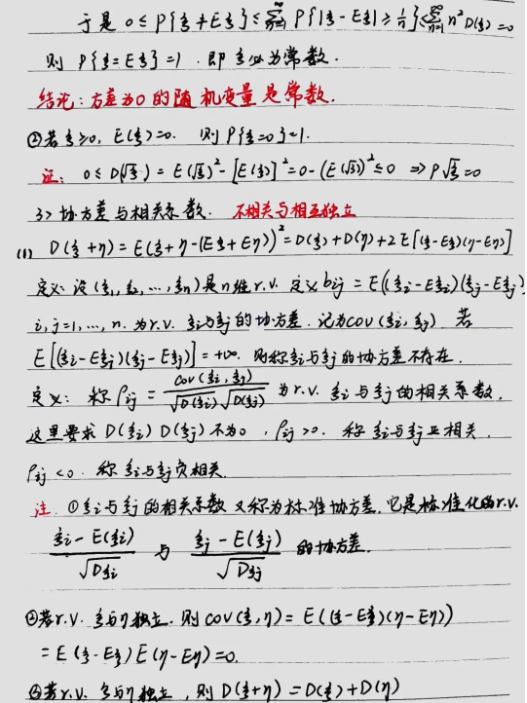 于是 0 ≤ P{ξ ≠ Eξ} ≤ ∑_{n=1}^{∞} P{|ξ - Eξ| ≥ 1/n} ≤ ∑_{n=1}^{∞} n² D(ξ) = 0
则 P{ξ = Eξ} = 1 . 即 ξ 必为常数.
结论: 方差为0 的随机变量是常数.
②若 ξ≥0, E(ξ)=0. 则 P{ξ=0}=1.
注: 0 ≤ D(√ξ) = E(√ξ)² - [E(√ξ)]² = 0 - (E(√ξ))² ≤ 0 ⇒ P√ξ = 0
3> 协方差与相关系数. 不相关与相互独立
(1) D(ξ+η) = E(ξ+η-(Eξ+Eη))² = D(ξ)+D(η)+2E[(ξ-Eξ)(η-Eη)]
定义: 设 (ξ₁, ξ₂, ..., ξn) 是n维 r.v. 定义 bij = E((ξi-Eξi)(ξj-Eξj))
i, j=1, ..., n. 为r.v. ξi与ξj的协方差. 记为cov(ξi, ξj) 若
E[(ξi-Eξi)(ξj-Eξj)] = +∞. 则称ξi与ξj的协方差不存在.
定义: 称 ρij = cov(ξi, ξj) / √D(ξi) √D(ξj) 为 r.v. ξi与ξj的相关系数,
这里要求 D(ξi) D(ξj) 不为0 , ρij >0. 称 ξi与ξj正相关.
ρij <0. 称 ξi与ξj负相关.
注. ①ξi与ξj的相关系数 又称为标准协方差. 它是标准化的r.v.
ξi - E(ξi) / √Dξi 与 ξj - E(ξj) / √Dξj 的协方差.
②若r.v. ξ与η独立. 则 cov(ξ, η) = E((ξ-Eξ)(η-Eη))
= E(ξ-Eξ) E(η-Eη) = 0.
③若r.v. ξ与η独立 , 则 D(ξ+η) = D(ξ)+D(η)